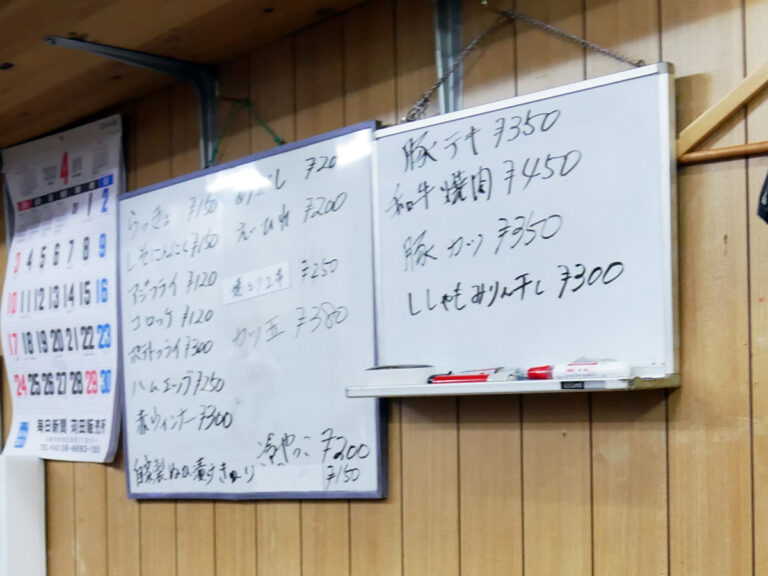 4
1 2
3 4 5 6 7 8 9
10 11 12 13 14 15 16
17 18 19 20 21 22 23
24 25 26 27 28 29 30
毎日新聞
らっきょ ¥150
しそにんにく ¥150
アジフライ ¥120
コロッケ ¥120
フライ ¥300
ハムエッグ ¥250
赤ウィンナー ¥300
自家製ぬか漬きゅうり ¥150
¥20
えいひれ ¥200
¥250
カツ玉 ¥380
冷やっこ ¥200
豚テキ ¥350
和牛焼肉 ¥450
豚カツ ¥350
ししゃもみりん干し ¥300